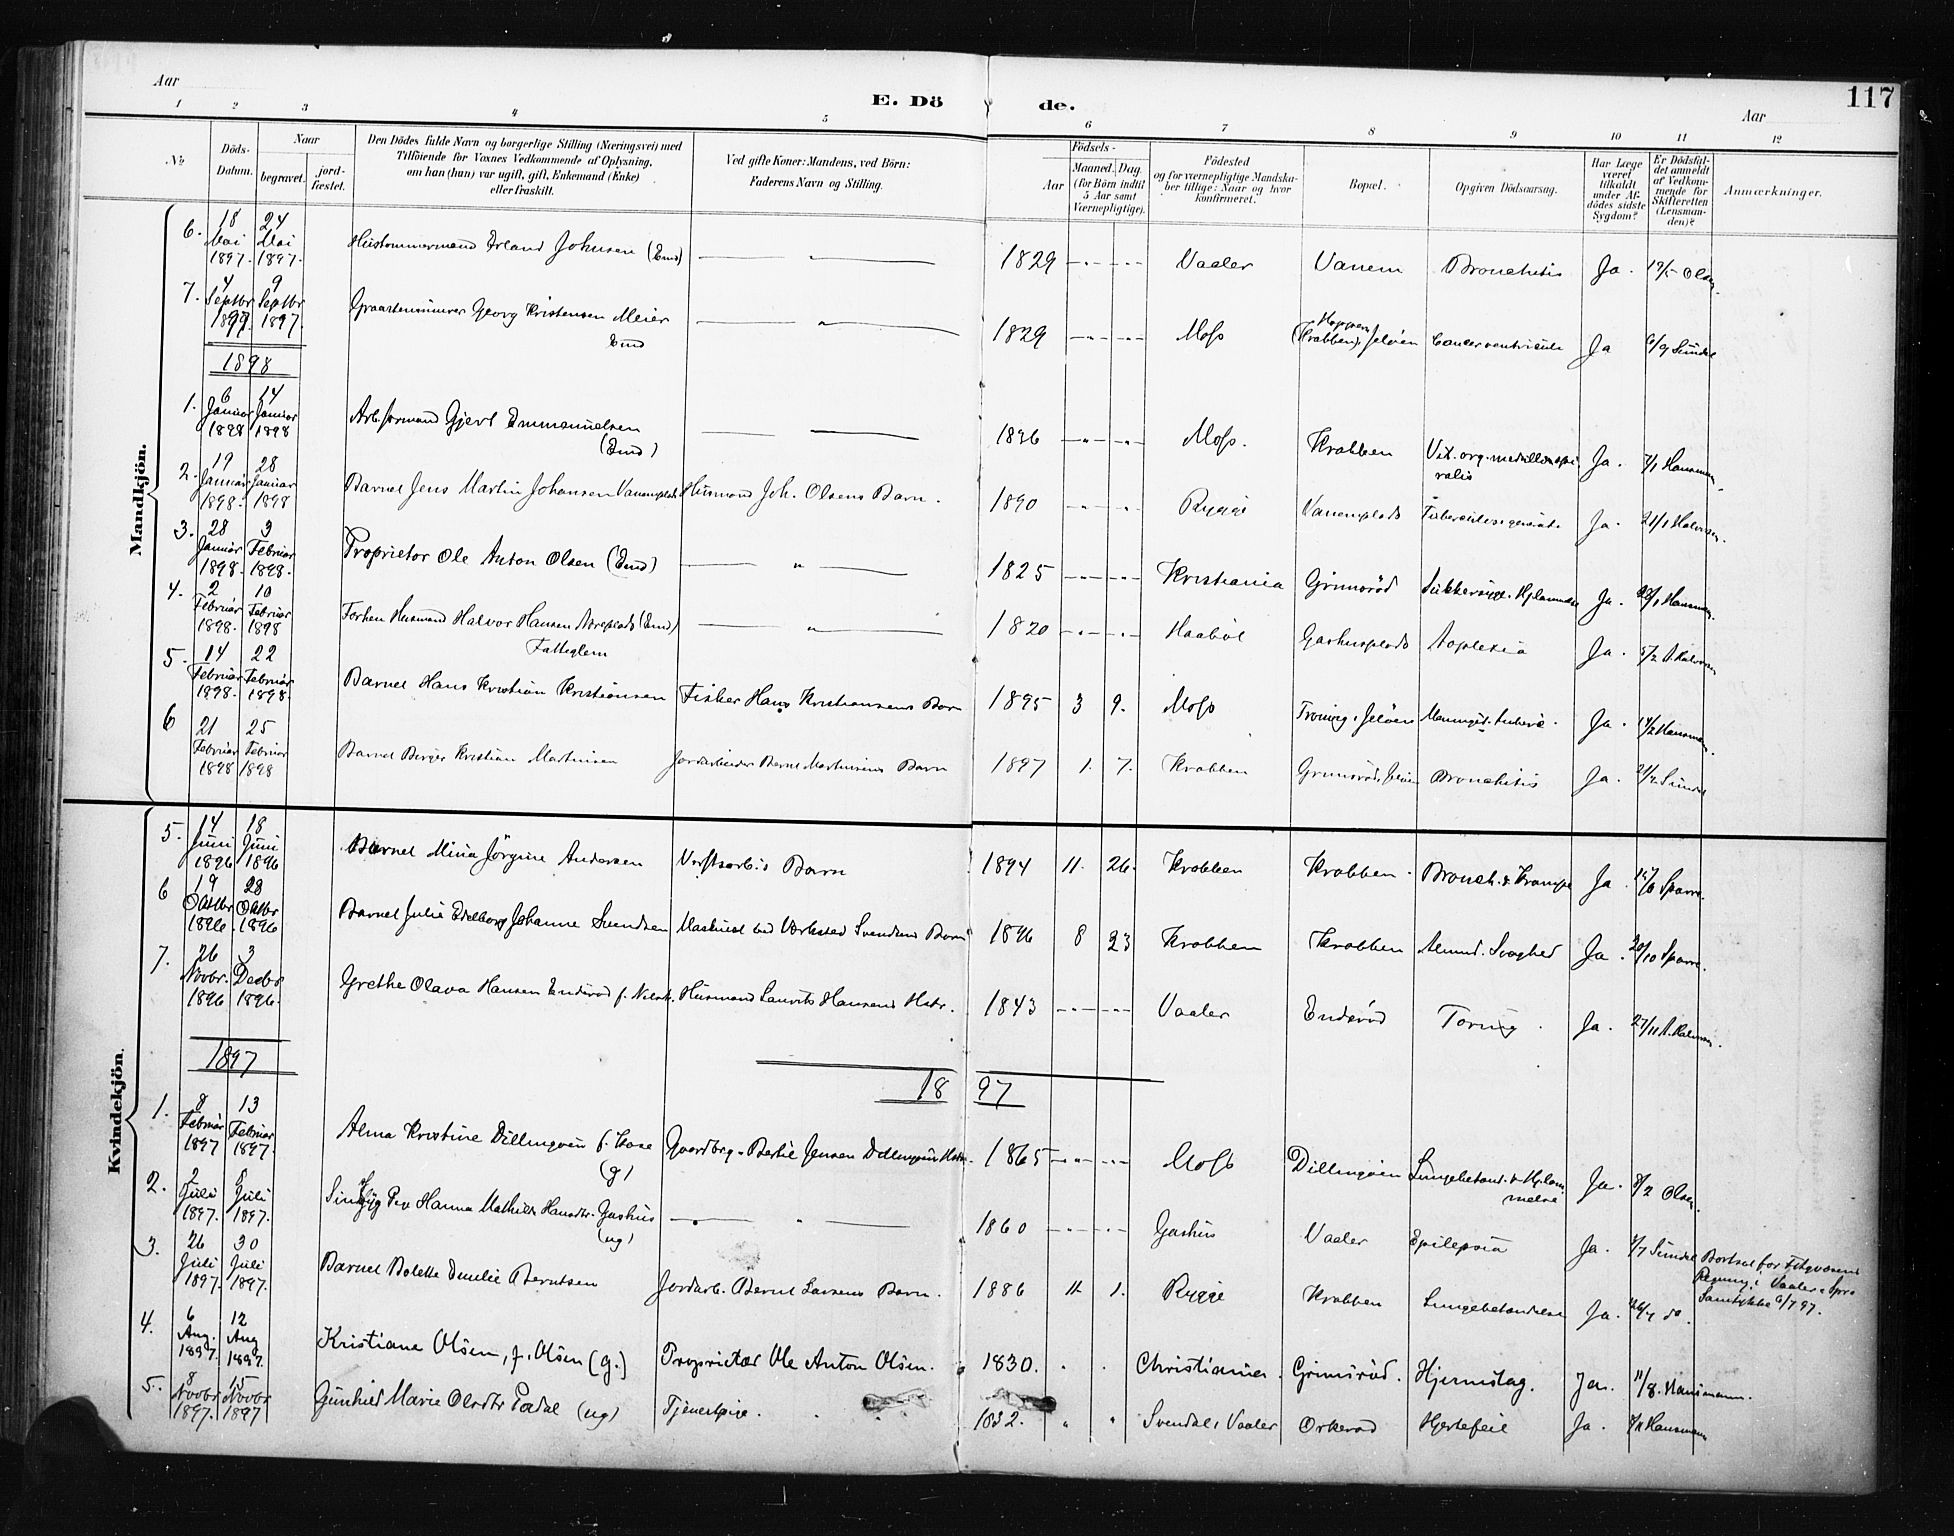 Aar
E. Dö de.
Aar
117
1 2 3 4 5 6 7 8 9 10 11 12
No
Döds-
Datum.
Naar
begravet.
jord-
fæstet.
Den Dödes fulde Navn og borgerlige Stilling (Næringsvei) med
Tilföiende for Voxnes Vedkommende af Oplysning,
om han (hun) var ugift, gift, Enkemand (Enke)
eller fraskilt.
Ved gifte Koner: Mandens, ved Börn:
Faderens Navn og Stilling.
Födsels-
Aar
Maaned. Dag.
(for Börn indtil
5 Aar samt
Værnepligtige).
Födested
og for værnepligtige Mandska-
ber tillige: Naar og hvor
konfirmeret.
Bopæl.
Opgiven Dödsaarsag.
Har Læge
været
tilkaldt
under Af-
dödes sidste
Sygdom?
Er Dödsfal-
det anmeldt
af Vedkom-
mende for
Skifteretten
(Lensman-
den)?
Anmærkninger.
Mandkjön.
6. 18 Mai 1897. 24 Mai 1897. Hustømmermand Erland Johnsen (Emd) 1829 Vaaler Vanem Bronchitis Ja. 19/5 Olsen.
7. 4 Septbr 1897. 9 Septbr 1897. Georg Kristensen Meier Emd 1829 Moss (Krabben), Jeløen Cancer ventriculi Ja 6/9 Sundel
1898
1. 6 Januar 1898 14 Januar 1898 Arb.formand Gjert Emmanuelsen (Emd) 1836 Moss. Krabben Vit. org. medullæ spi-
ralis Ja. 7/1 Hansmann.
2. 19 Januar 1898. 28 Januar 1898 Barnet Jens Martin Johansen Vanemplads Husmand Joh. Olsens Barn. 1890 Rygge Vanemplads Ja. 21/1 Halvorsen.
3. 28 Januar 1898. 3 Februar 1898. Proprietær Ole Anton Olsen (Emd) 1825 Kristiania Grimsrød Sukkersyge. Hjlammelse Ja. 29/1 Hansmann.
4. 2 Februar 1898. 10 Februar 1898 Forhen Husmand Halvor Hansen Noreplads (Emd)
Fattiglem 1820 Haabøl Gashusplads Apoplexia Ja. 5/2 A. Halvorsen
5. 14 Februar 1898. 22 Februar 1898. Barnet Hans Kristian Kristiansen Fisker Hans Kristiansens Barn 1895 3 9. Moss Tronvig, Jeløen Meningit. tuberc. Ja. 14/2 Hansmann.
6 21 Februar 1898 25 Februar 1898 Barnet Birger Kristian Martinsen Jordarbeider Bernt Martinsens Barn 1897 1. 7. Krabben Grimsrød, Jeløen Bronchitis Ja. 21/2 Sundel
Kvindekjön.
5. 14 Juni 1896 18 Juni 1896 Barnet Mina Jørgine Andersen Verftsarb.s Barn 1894 11. 26. Krabben Krabben. Bronch. & Krampe Ja. 15/6 Sparre.
6 19 Oktbr 1896. 28 Oktbr 1896 Barnet Julie Edelborg Johanne Svendsen Maskinist ved Værksted Svendsens Barn 1896 8 23 Krabben Krabben Almind. Svaghed Ja. 20/10 Sparre.
7. 26 Novbr. 1896 3 Decbr 1896. Grethe Olava Hansen Enderød f. Nilsd. Husmand Laurits Hansens Hstr. 1843 Vaaler Enderød Tæring. Ja. 27/11 A. Halvorsen.
1897
18 97
1. 8 Februar 1897 13 Februar 1897. Alma Kristine Dillingøen f. Hase
(g) Gaardbrg. Bertil Jensen Dillingøens Hstr. 1865 Moss Dillingøen Lungebetænd. & Hj.lam-
melse Ja. 8/2 Olsen.
2. 2 Juli 1897. 8 Juli 1897. Sindssyg Pige Hanna Mathilde Hansdtr. Gashus
(ug) 1860 Gashus Vaaler Epilepsia Ja. 4/7 Sundel Bortsat for Fttgvæsenets
Regning i Vaaler. Spr.
Samtykke 6/7 97.
3. 26 Juli 1897. 30 Juli 1897. Barnet Bolette Emelie Berntsen Jordarb. Bernt Larsens Barn. 1886 11 1. Rygge Krabben Lungebetændelse Ja. 26/7 do.
4. 6 Aug. 1897. 12 Aug 1897. Kristiane Olsen, f. Olsen (g.) Proprietær Ole Anton Olsen. 1830. Christiania. Grimsrød. Hjernslag. Ja. 11/8. Hansmann.
5. 8 Novbr 1897. 15 Novbr 1897 Gunhild Marie Olsdtr Eadal (ug) Tjenestpige. 1832. Svendal, Vaaler Orkerød Hjertefeil Ja. 9/11 Hansmann